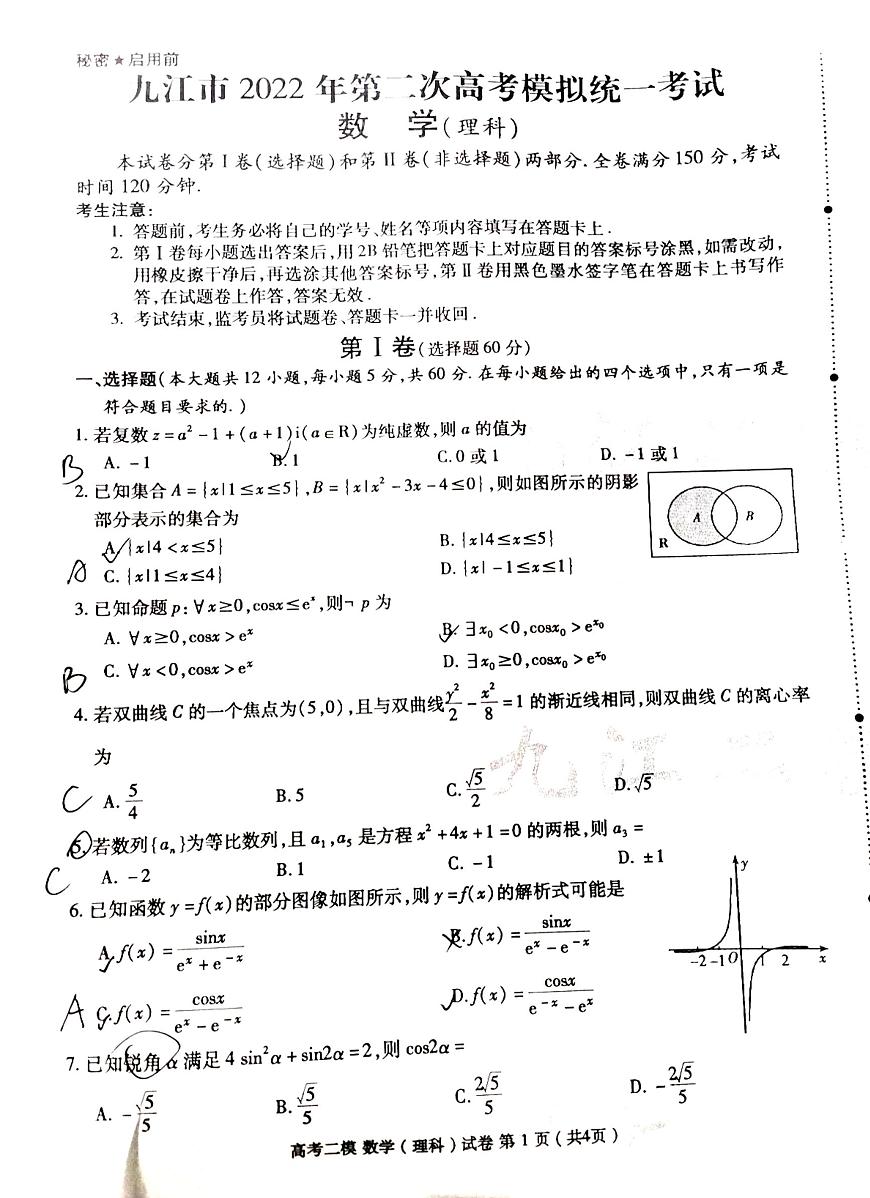 秘密★启用前
九江市2022年第二次高考模拟统一考试
数 学(理科)
本试卷分第Ⅰ卷(选择题)和第Ⅱ卷(非选择题)两部分.全卷满分150分,考试
时间120分钟.
考生注意:
1. 答题前,考生务必将自己的学号、姓名等项内容填写在答题卡上.
2. 第Ⅰ卷每小题选出答案后,用2B铅笔把答题卡上对应题目的答案标号涂黑,如需改动,
用橡皮擦干净后,再选涂其他答案标号,第Ⅱ卷用黑色墨水签字笔在答题卡上书写作
答,在试题卷上作答,答案无效.
3. 考试结束,监考员将试题卷、答题卡一并收回.
第Ⅰ卷(选择题60分)
一、选择题(本大题共12小题,每小题5分,共60分.在每小题给出的四个选项中,只有一项是
符合题目要求的.)
1. 若复数z=a²-1+(a+1)i(a∈R)为纯虚数,则a的值为
B A. -1 B. 1 C. 0或1 D. -1或1
2. 已知集合A={x|1≤x≤5},B={x|x²-3x-4≤0},则如图所示的阴影
部分表示的集合为
A B R
A. {x|4<x≤5} B. {x|4≤x≤5}
A C. {x|1≤x≤4} D. {x|-1≤x≤1}
3. 已知命题p:∀x≥0,cosx≤eˣ,则¬p为
A. ∀x≥0,cosx>eˣ B. ∃x₀<0,cosx₀>e^x₀
B C. ∀x<0,cosx>eˣ D. ∃x₀≥0,cosx₀>e^x₀
4. 若双曲线C的一个焦点为(5,0),且与双曲线y²/2-x²/8=1的渐近线相同,则双曲线C的离心率
为
九江
C A. 5/4 B. 5 C. √5/2 D. √5
5. 若数列{aₙ}为等比数列,且a₁,a₅是方程x²+4x+1=0的两根,则a₃=
C A. -2 B. 1 C. -1 D. ±1
6. 已知函数y=f(x)的部分图像如图所示,则y=f(x)的解析式可能是
A. f(x)=sinx/(eˣ+e⁻ˣ) B. f(x)=sinx/(eˣ-e⁻ˣ)
y
-2 -1 O 1 2 x
A C. f(x)=cosx/(eˣ-e⁻ˣ) D. f(x)=cosx/(e⁻ˣ-eˣ)
7. 已知锐角α满足4sin²α+sin2α=2,则cos2α=
A. -√5/5 B. √5/5 C. 2√5/5 D. -2√5/5
高考二模 数学(理科)试卷 第1页(共4页)